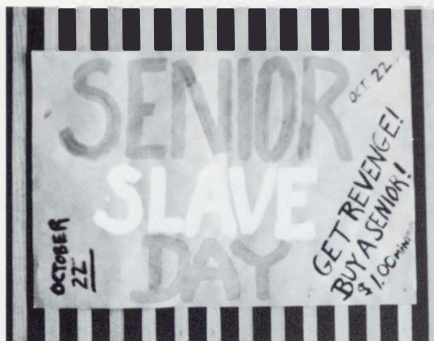 SENIOR
SLAVE
DAY
OCTOBER
22
OCT. 22
GET REVENGE!
BUY A SENIOR!
$1.00